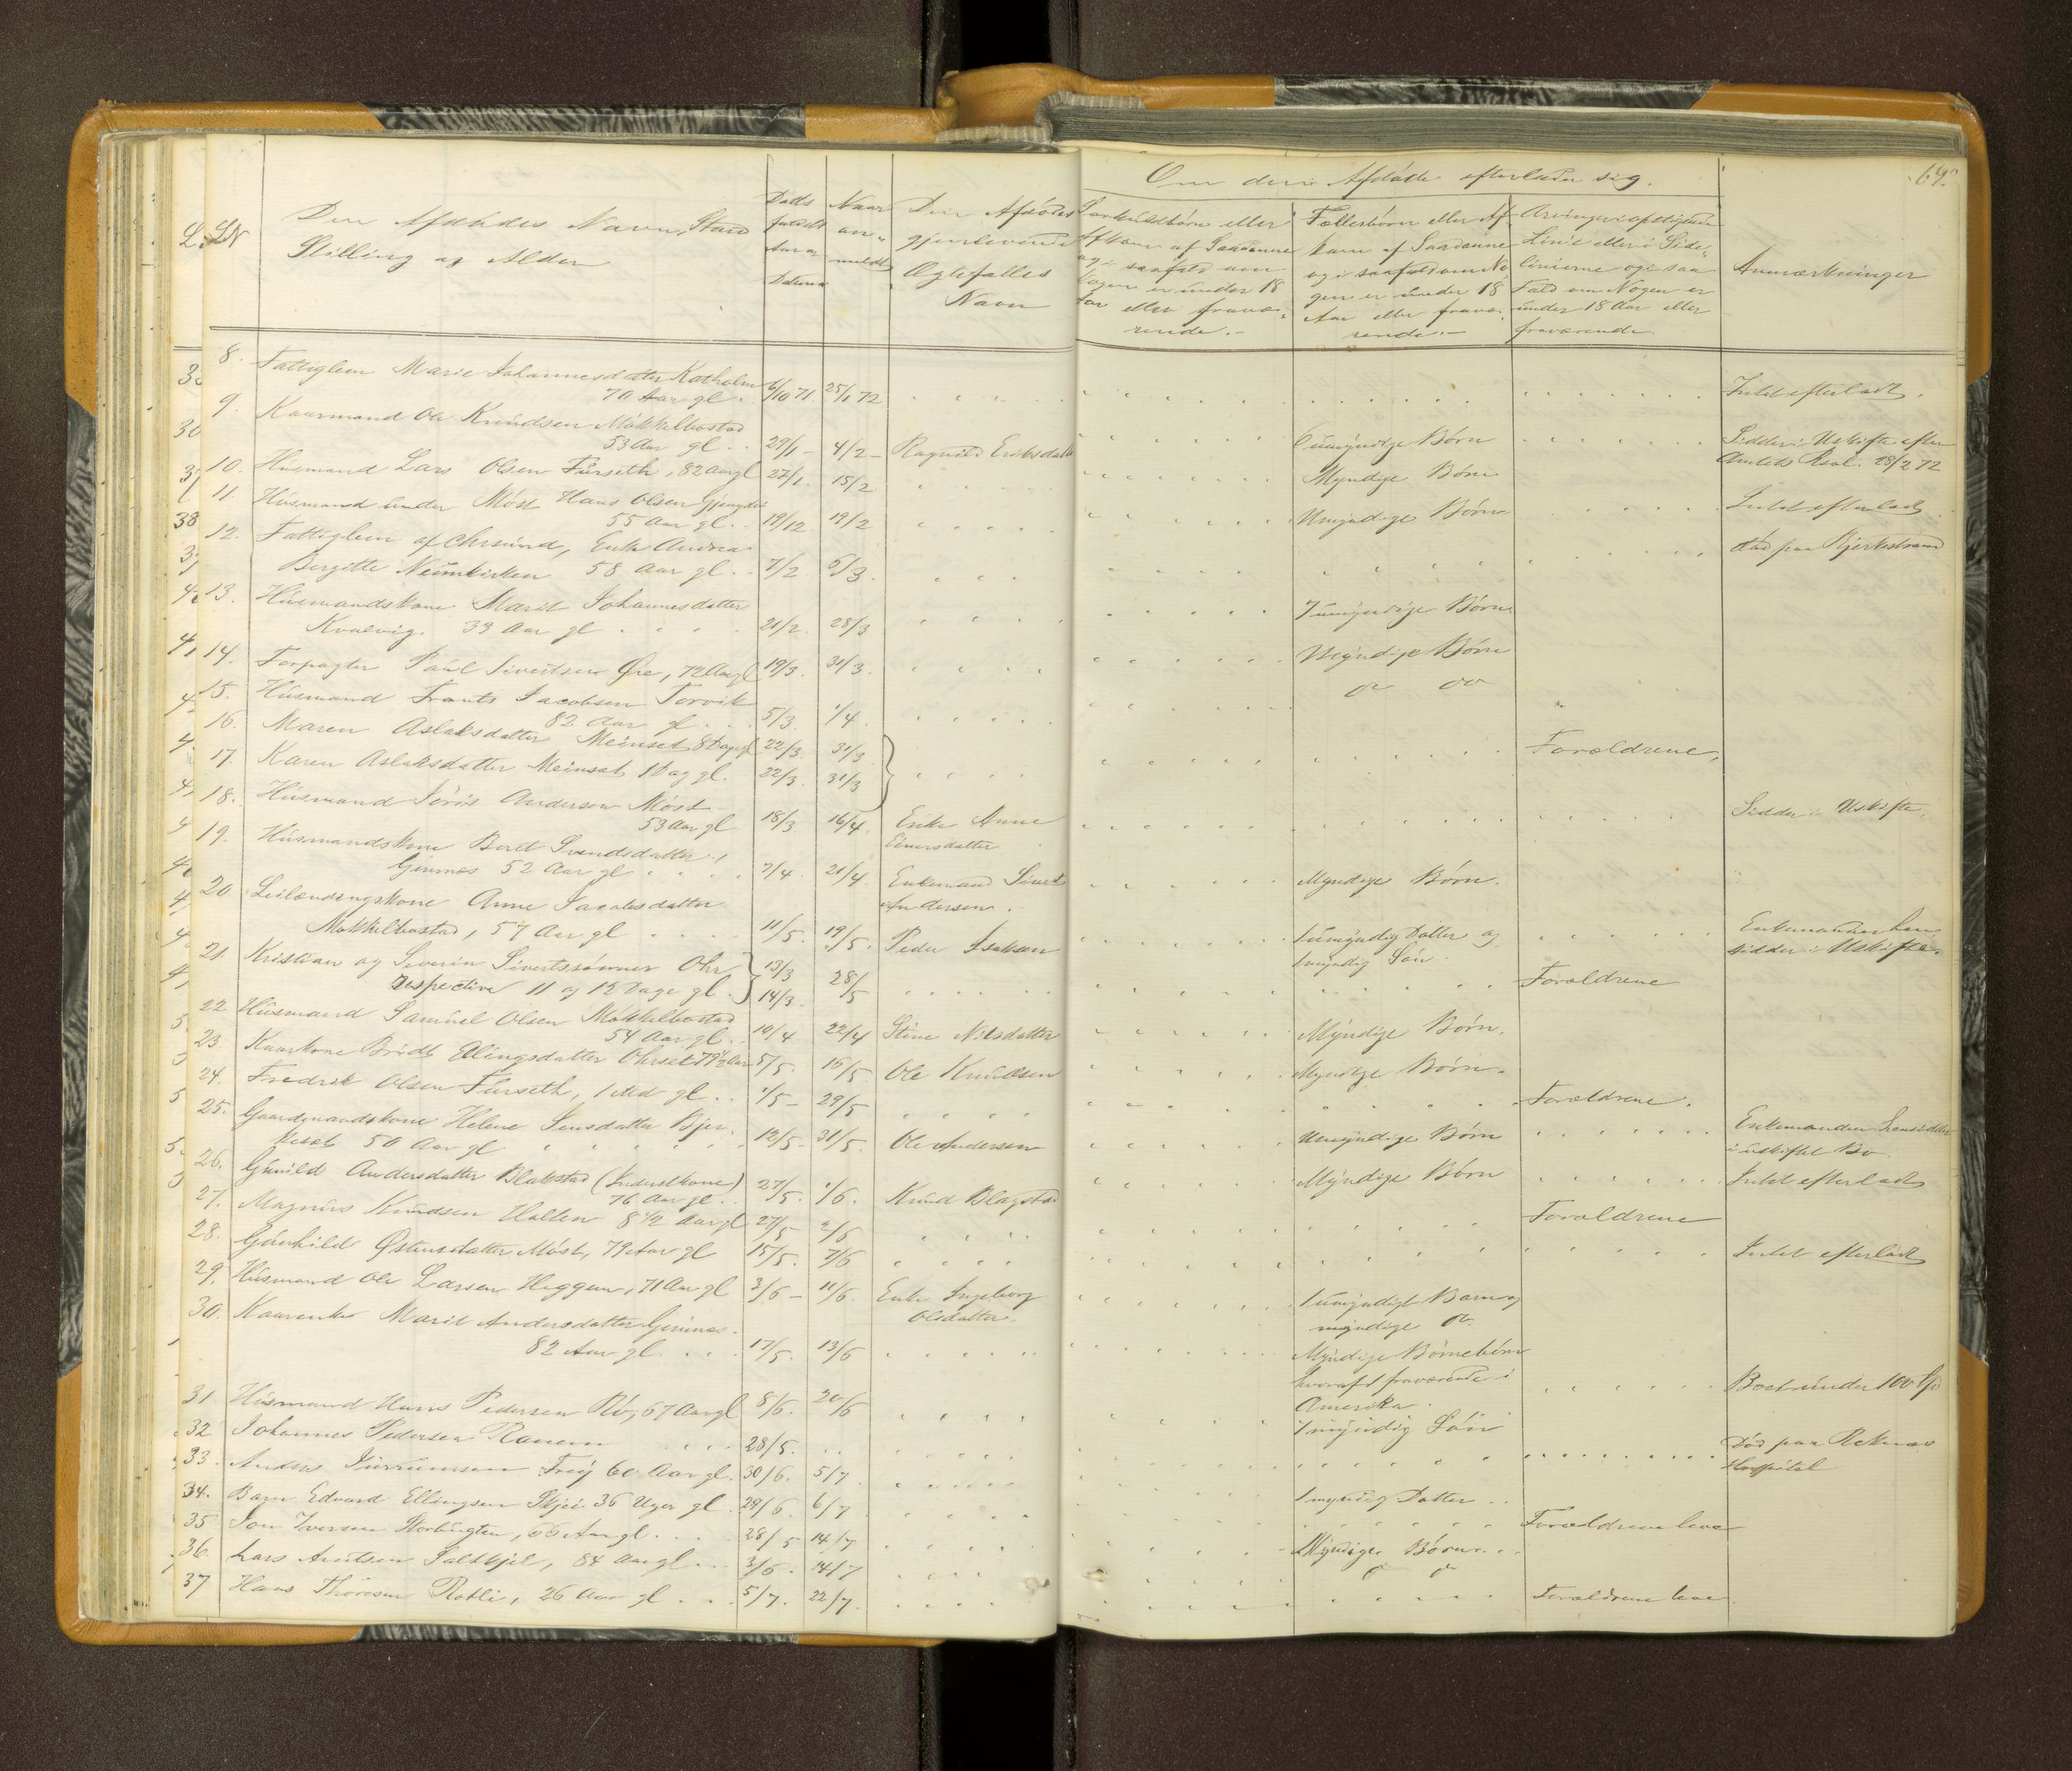 64.
Om den Afdøde efterlader sig.
LN
Den Afdødes Navn, Stand
Stilling og Alder
Døds
faldets
Aar og
Datum
Naar
an-
meldt
Den Afdødes
gjenlevende
Ægtefælles
Navn
Særkuldbørn eller
Afkom af Saadanne
og i saafald om
Nogen er under 18
Aar eller fravæ-
rende.-
Fællesbørn eller Af-
kom af Saadanne
og i saafald om No-
gen er under 18
Aar eller fravæ-
rende.-
Arvinger i opstigende
Linie eller i Side-
linierne og i saa
Fald om Nogen er
under 18 Aar eller
fraværende.
Anmærkninger
8. Fattiglem Marie Johannesdatter Karholm
70 Aar gl. 6/10 71. 25/1 72 Intet efterladt.
9. Kaarmand Ole Knudsen Mækkelbostad
53 Aar gl. 29/1 - 4/2 - Ragnild Eriksdatter 6 umyndige Børn Sidder i Uskifte efter
Amtets Resol. 28/2 72
10. Husmand Lars Olsen Furseth, 82 Aar gl 27/1. 15/2 Myndige Børn
11. Husmand under Møst Hans Olsen
55 Aar gl. 19/12. 19/2 Umyndige Børn Intet efterladt
12. Fattiglem af Chrsund, Enke Andrea
Bergitte Neumkirken 58 Aar gl. 7/2 6/3. død paa Bjerkestrand
13. Husmandskone Marit Johannesdatter
Kvalvig. 39 Aar gl 21/2. 28/3 7 umyndige Børn
14. Forpagter Paul Sivertsen Øre, 72 Aar gl 19/3. 31/3. Myndige Børn
15. Husmand Frants Jacobsen Torvik
82 Aar gl. 5/3. 1/4. do do
16. Maren Aslaksdatter Meinset 8 Dage gl 22/3. 31/3
17. Karen Aslaksdatter Meinset 1 Dag gl. 22/3. 31/3 Forældrene,
18. Husmand Anderson Møst
53 Aar gl 18/3 16/4. Enke Anne
Einersdatter Sidder i Uskifte,
19. Husmandskone Beret Svendsdatter
Gimnes 52 Aar gl 7/4. 21/4. Enkemand Sivert
Andersen. Myndige Børn.
20 Leilændingskone Anne Jacobsdatter
Mækkelbostad, 57 Aar gl 11/5. 19/5. Peder Isaksen 1 umyndig Datter og
1 myndig Søn. Enkemanden hen-
sidder i Uskifte.
21 Kristian og Severin Sivertssønner Ohr
respective 11 og 12 Dage gl. 13/3 14/3. 28/5 Forældrene
22 Husmand Samuel Olsen Mækkelbostad
54 Aar gl. 10/4 22/4 Stine Nilsdatter Myndige Børn.
23. Kaarkone Brodt Ellingsdatter Ohrset 79 1/2 Aar 5/5. 16/5 Ole Knudsen Myndige Børn.
24. Fredrik Olsen Furseth, 1 Md gl. 1/5 - 29/5 Forældrene.
25. Gaardmandskone Helene Jensdatter Bjer-
keset 50 Aar gl 12/5 - 31/5. Ole Andersen Umyndige Børn Enkemanden hensidder
i uskiftet Bo.
26. Gunild Andersdatter Blakstad (Inderstkone)
76 Aar gl. 27/5. 1/6. Knud Blagstad Myndige Børn Intet efterladt
27. Magnus Knudsen Holten 8 1/2 Aar gl 27/5 2/6 Forældrene
28. Gunhild Østensdatter Møst, 79 Aar gl 15/5. 7/6 Intet efterladt
29. Husmand Ole Larsen Heggem, 71 Aar gl 3/6 - 11/6. Enke Ingeborg
Olsdatter. 1 umyndigt Barn og
myndige do.
30. Kaarenke Marit Andersdatter Gimnes.
82 Aar gl. 17/5. 13/6 Myndige Børnebørn
hvoraf 1 fraværende i
Amerika. Boet under 100 Spd
31. Husmand Hans Pedersen Rø, 67 Aar gl 8/6. 20/6 1 myndig Søn
32 Johannes Pedersen Ranem 28/5. Død paa Reknes
Hospital
33. Anders Freý 60 Aar gl. 30/6. 5/7. 1 myndig Datter
34. Barn Edvard Ellingsen Skjei 36 Uger gl. 29/6. 6/7. Forældrene leve
35 Jon Iversen Storlugten, 66 Aar gl. 28/5 14/7 Myndige Børn
36. Lars Arntsen Saltkjel, 84 Aar gl. 3/6. 14/7 do do
37 Hans Thoresen Rotli, 26 Aar gl 5/7. 22/7. Forældrene leve.